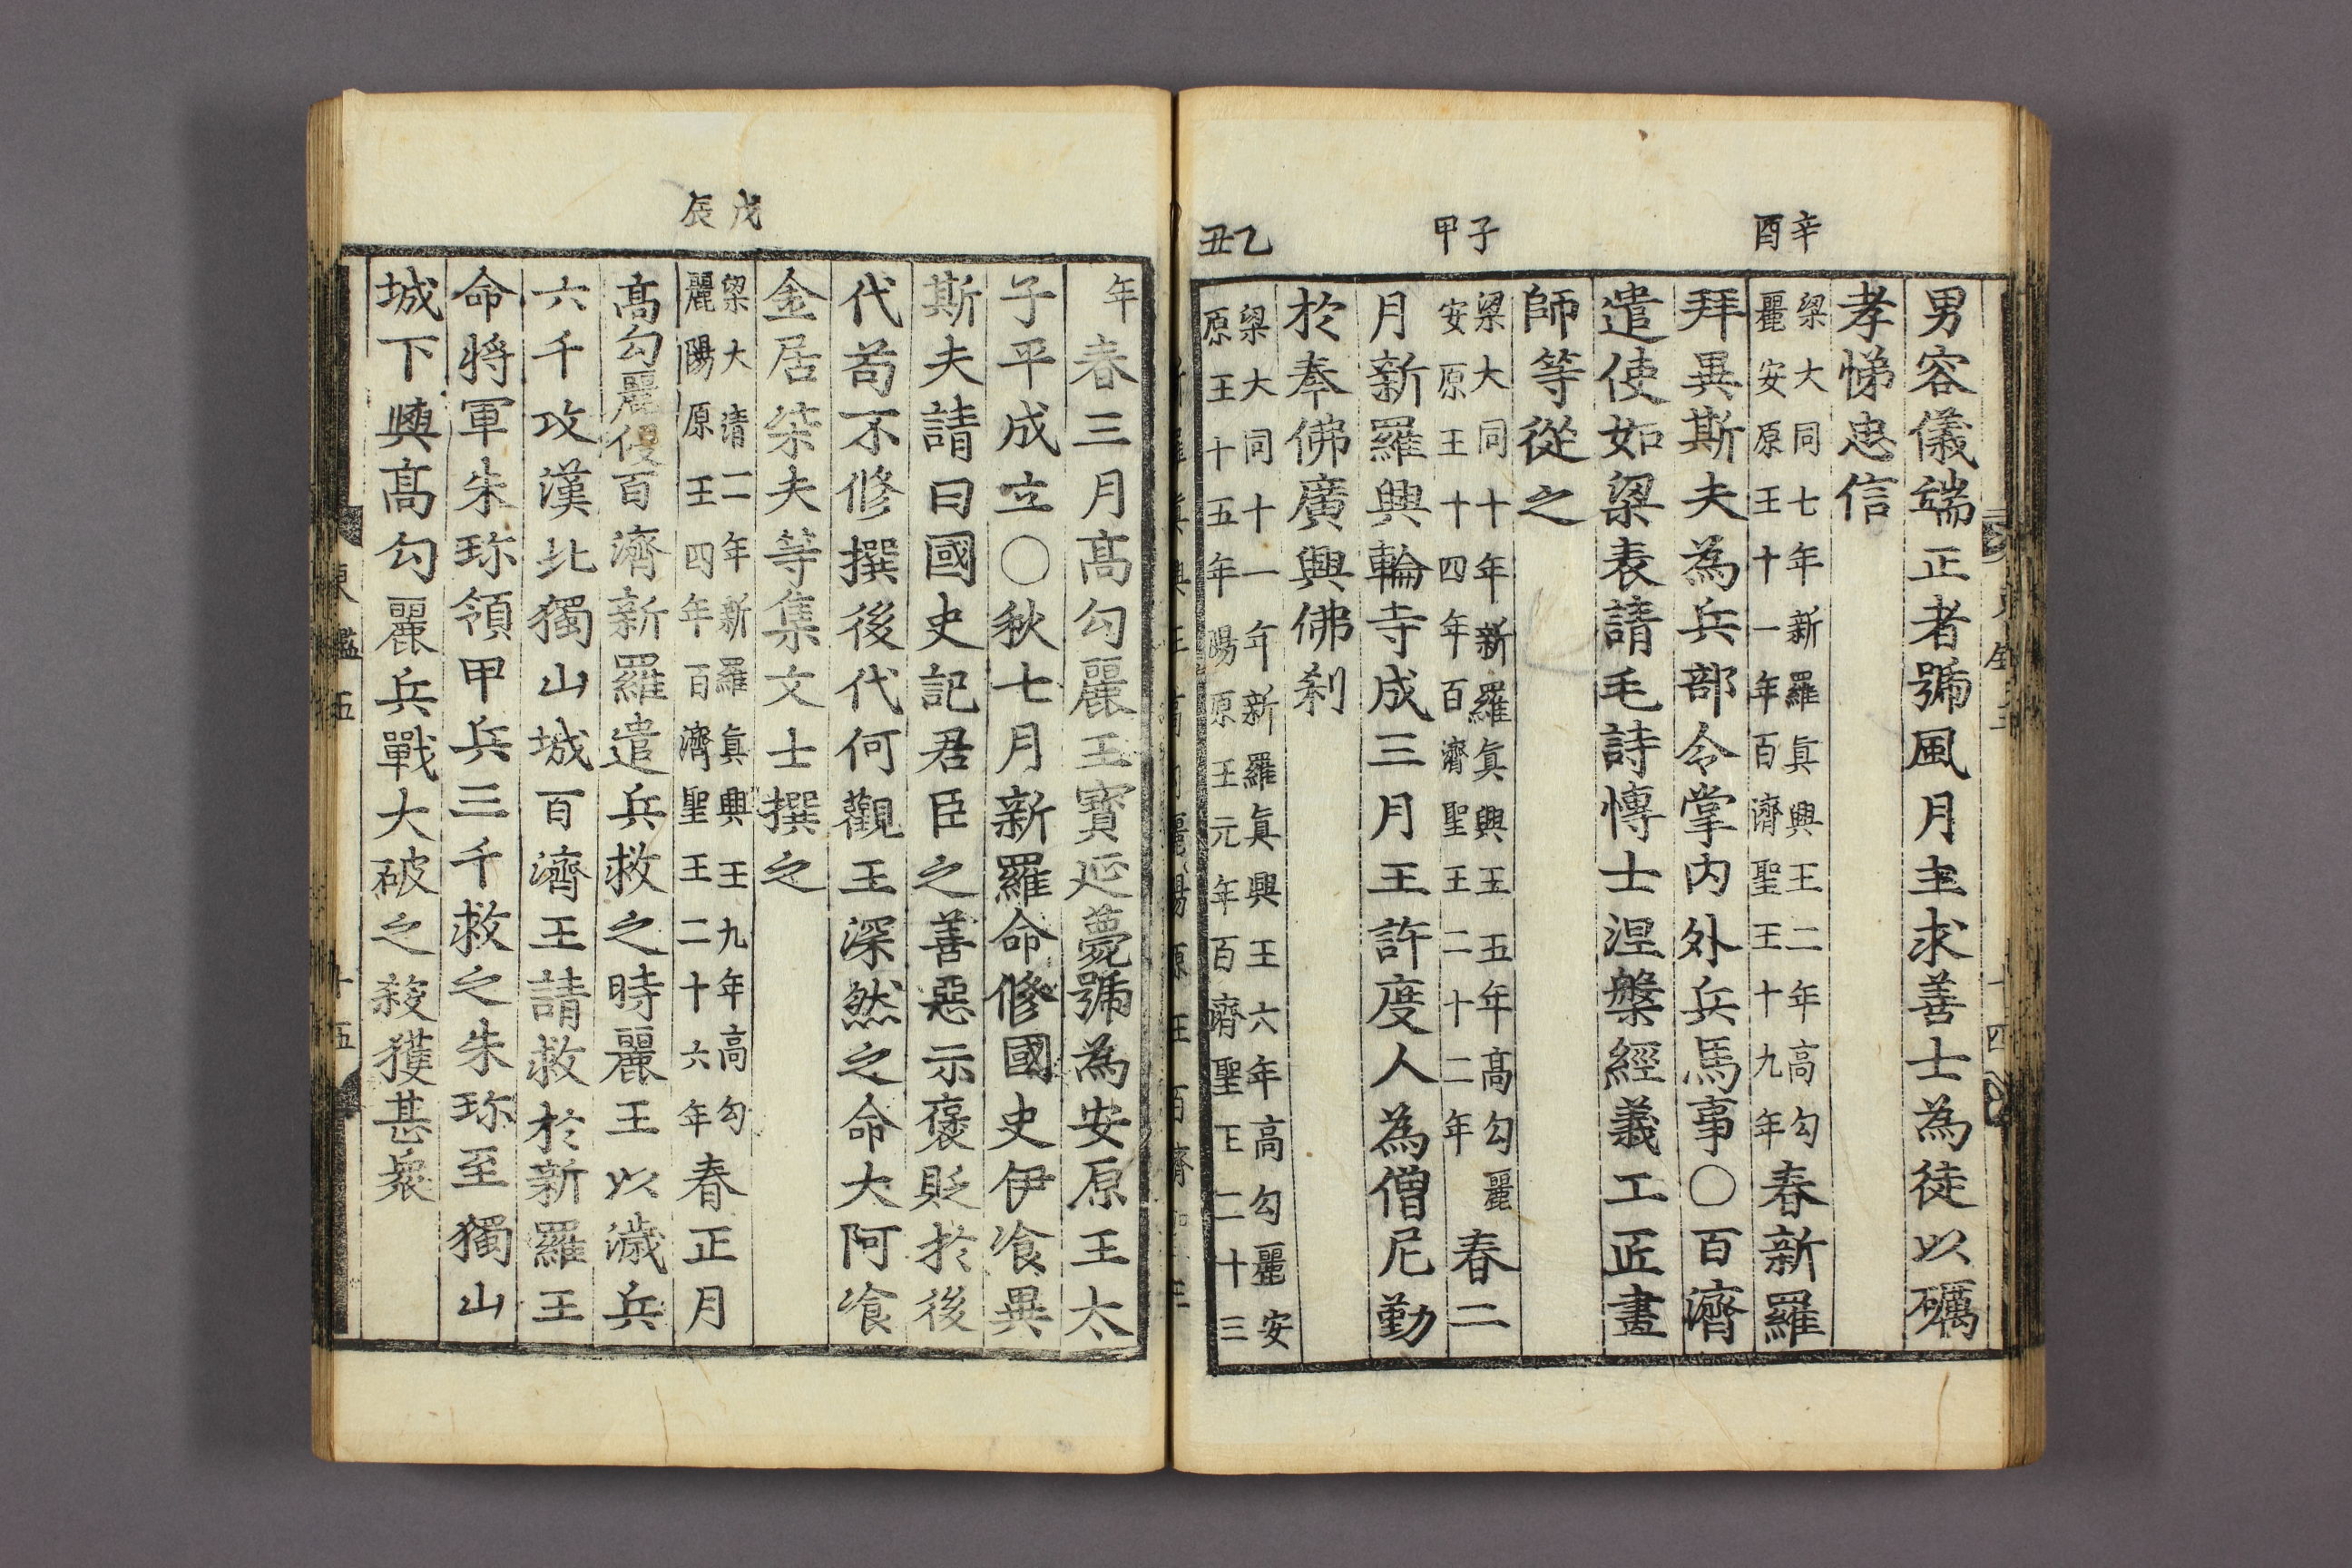 辛酉
甲子
乙丑
男容儀端正者號風月主求善士為徒以礪
孝悌忠信
梁大同七年新羅眞興王二年高勾
麗安原王十一年百濟聖王十九年
春新羅
拜異斯夫為兵部令掌內外兵馬事〇百濟
遣使如梁表請毛詩博士涅槃經義工匠畫
師等從之
梁大同十年新羅眞興王五年高勾麗
安原王十四年百濟聖王二十二年
春二
月新羅興輪寺成三月王許度人為僧尼勤
於奉佛廣興佛刹
梁大同十一年新羅眞興王六年高勾麗安
原王十五年陽原王元年百濟聖王二十三
戊辰
年
春三月高勾麗王寶延薨號為安原王太
子平成立〇秋七月新羅命修國史伊飡異
斯夫請曰國史記君臣之善惡示褒貶於後
代苟不修撰後代何觀王深然之命大阿飡
金居柒夫等集文士撰之
梁大淸二年新羅眞興王九年高勾
麗陽原王四年百濟聖王二十六年
春正月
高勾麗侵百濟新羅遣兵救之時麗王以濊兵
六千攻漢北獨山城百濟王請救於新羅王
命將軍朱珎領甲兵三千救之朱珎至獨山
城下與高勾麗兵戰大破之殺獲甚衆
東鑑五
十五